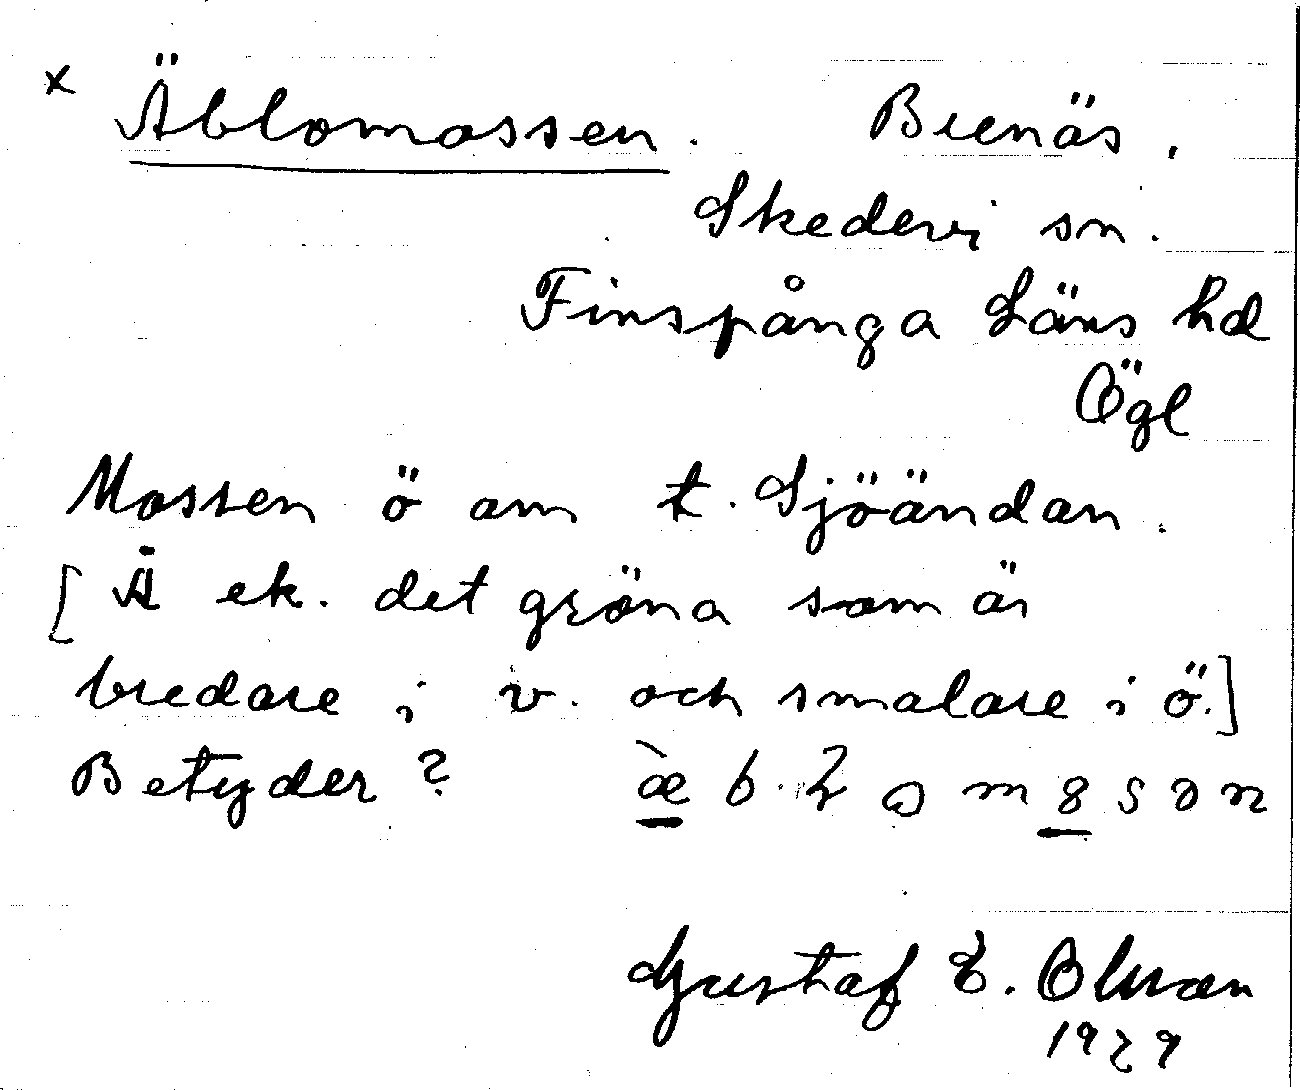 x Äblomossen. Brenäs.
Skedevi sn.
Finspånga Läns hd
Ögl
Mossen ö om t. Sjöändan.
[Å ek. det gröna som är
bredare i v. och smalare i ö.]
Betyder?
Gustaf E. Olsson
1929